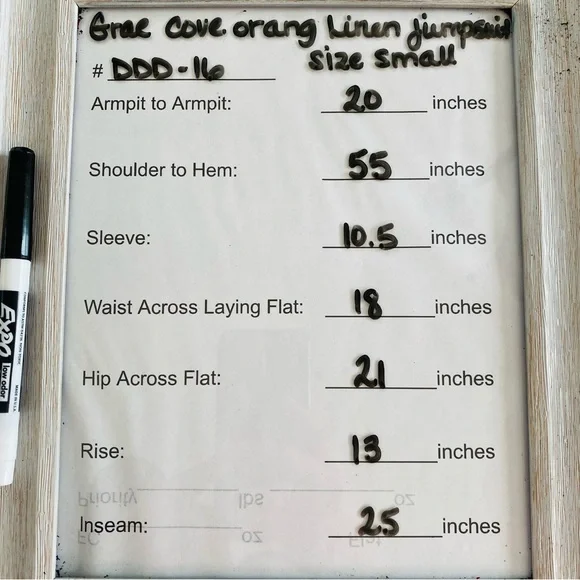 Grae Cove orang Linen jumpsuit
size small
# DDD-16
Armpit to Armpit: 20 inches
Shoulder to Hem: 55 inches
Sleeve: 10.5 inches
Waist Across Laying Flat: 18 inches
Hip Across Flat: 21 inches
Rise: 13 inches
Priority lbs oz
Inseam: 25 inches
FC oz Flat
EXPO
low odor